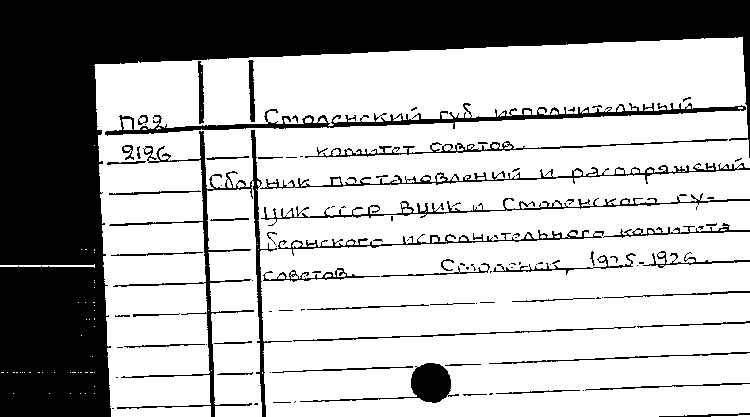 П22 Смоленский губ исполнительный
2126 комитет советов.
Сборник постановлений и распоряжений
ЦИК СССР, ВЦИК и Смоленского гу-
бернского исполнительного комитета
советов. Смоленск, 1925-1926.